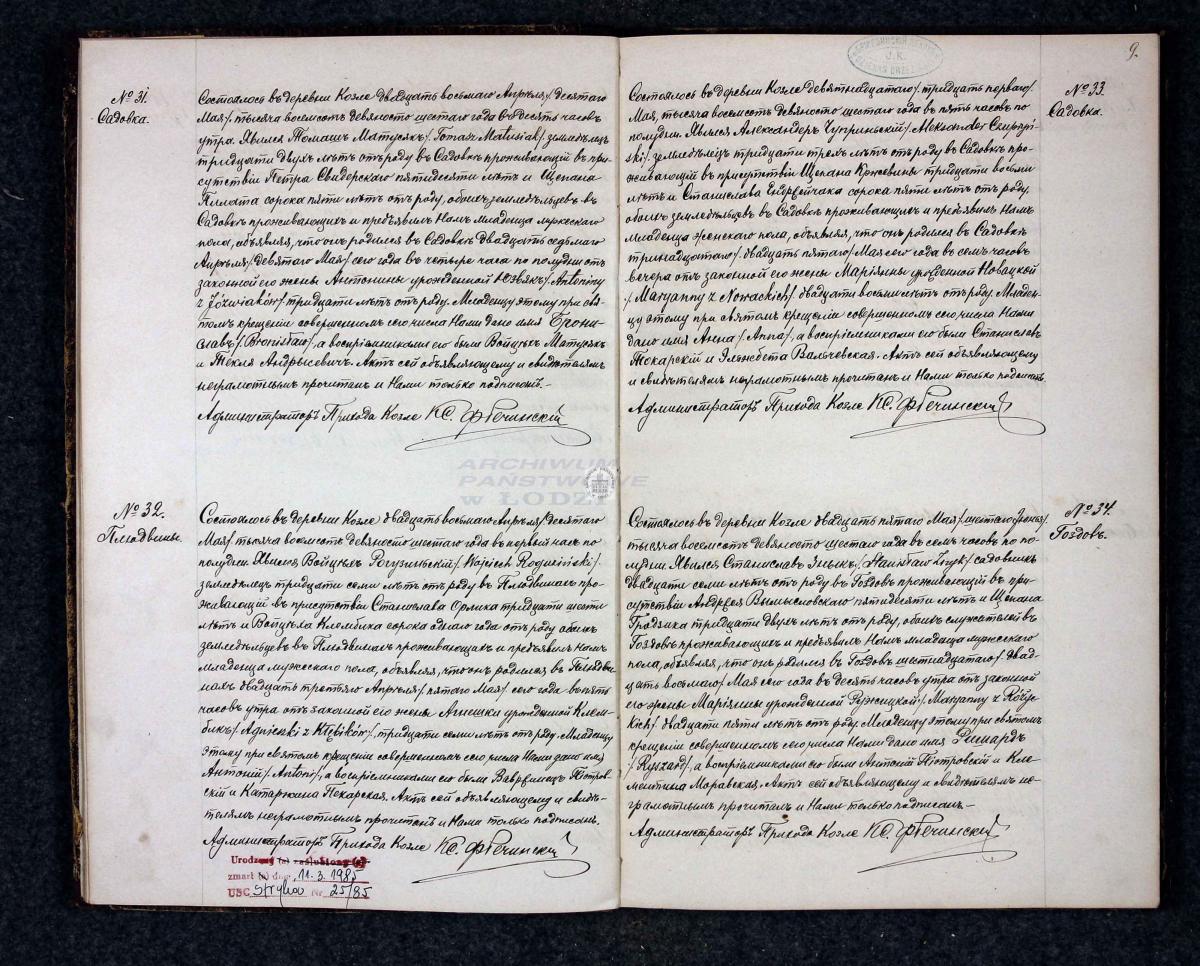 № 31.
Садовка.
Состоялось въ деревни Козле двадцать восьмаго Апрѣля/ десятаго
Мая/ тысяча восемсотъ девяносто шестаго года въ десять часовъ
утра. Явился Томашъ Матусякъ/ Tomasz Matusiak/ земледѣлецъ
тридцати двухъ лѣтъ отъ роду въ Садовкѣ проживающій въ при-
сутствіи Петра Свидерскаго пятидесяти лѣтъ и Щепана
Пилата сорока пяти лѣтъ отъ роду, обоихъ земледѣльцевъ въ
Садовкѣ проживающихъ и предъявилъ Намъ младенца мужескаго
пола, объявляя, что онъ родился въ Садовкѣ двадцать седьмаго
Апрѣля/ девятаго Мая/ сего года въ четыре часа по полудни отъ
законной его жены Антонины урожденной Юзвякъ/ Antoniny
z Józwiaków/ тридцати лѣтъ отъ роду. Младенцу этому при свя-
томъ крещеніи совершенномъ сего числа Нами дано имя Брони-
славъ/ Bronisław/, а воспріемниками его были Войцѣхъ Матусякъ
и Текля Андрысевичъ. Актъ сей объявляющему и свидѣтелямъ
неграмотнымъ прочитанъ и Нами только подписанъ.-
Администраторъ Прихода Козле КС.
№ 32.
Плюдвины.
Состоялось въ деревни Козле двадцать восьмаго Апрѣля/ десятаго
Мая/ тысяча восемсотъ девяносто шестаго года въ первый часъ по
полудни. Явился Войцѣхъ Рогузинскій/ Wojciech Roguziński/
земледѣлецъ тридцати семи лѣтъ отъ роду въ Плюдвинахъ про-
живающій въ присутствіи Станислава Орлика тридцати шести
лѣтъ и Войцѣха Клембика сорока одного года отъ роду обоихъ
земледѣльцевъ въ Плюдвинахъ проживающихъ и предъявилъ Намъ
младенца мужескаго пола, объявляя, что онъ родился въ Плюдви-
нахъ двадцать третьяго Апрѣля/ пятаго Мая/ сего года въ пять
часовъ утра отъ законной его жены Агнешки урожденной Клем-
бикъ/ Agnieszki z Kłębików/, тридцати семи лѣтъ отъ роду. Младенцу
этому при святомъ крещеніи совершенномъ сего числа Нами дано имя
Антоній/ Antoni/, а воспріемниками его были Вавржинецъ Піотров-
скій и Катаржина Пекарская. Актъ сей объявляющему и свидѣ-
телямъ неграмотнымъ прочитанъ и Нами только подписанъ.
Администраторъ Прихода Козле КС.
Urodzony (a) zaślubiony (a)
zmarł (a) dnia 11.3.1985
USC Stryków Nr 25/85
9.
J.K.
№ 33
Садовка.
Состоялось въ деревни Козле девятнадцатаго/ тридцать перваго/
Мая, тысяча восемсотъ девяносто шестаго года въ пять часовъ по
полудни. Явился Александеръ Чуприньскій/ Aleksander Czupryń-
ski/ земледѣлецъ тридцати трехъ лѣтъ отъ роду въ Садовкѣ про-
живающій въ присутствіи Щепана Крживины тридцати восьми
лѣтъ и Станислава Ендржейчака сорока пяти лѣтъ отъ роду,
обоихъ земледѣльцевъ въ Садовкѣ проживающихъ и предъявилъ Намъ
младенца женскаго пола, объявляя, что онъ родился въ Садовкѣ
тринадцатаго/ двадцать пятаго/ Мая сего года въ семь часовъ
вечера отъ законной его жены Маріянны урожденной Новацкой
/ Maryanny z Nowackich/ двадцати восьми лѣтъ отъ роду. Младен-
цу этому при святомъ крещеніи совершенномъ сего числа Нами
дано имя Анна/ Anna/, а воспріемниками его были Станиславъ
Токарскій и Эльжбета Вальчевская. Актъ сей объявляющему
и свидѣтелямъ неграмотнымъ прочитанъ и Нами только подписанъ.
Администраторъ Прихода Козле КС.
№ 34.
Гоздовъ.
Состоялось въ деревни Козле двадцать пятаго Мая/ шестаго Іюня/
тысяча восемсотъ девяносто шестаго года въ семь часовъ по по-
лудни. Явился Станиславъ/ Stanisław/ садовникъ
двадцати семи лѣтъ отъ роду въ Гоздовѣ проживающій въ при-
сутствіи Андржея Вымысловскаго пятидесяти лѣтъ и Щепана
Гродзика тридцати двухъ лѣтъ отъ роду, обоихъ служителей въ
Гоздовѣ проживающихъ и предъявилъ Намъ младенца мужескаго
пола, объявляя, что онъ родился въ Гоздовѣ шестнадцатаго/ двад-
цать восьмаго/ Мая сего года въ десять часовъ утра отъ законной
его жены Маріянны урожденной Ружицкой/ Maryanny z Różyc-
kich/ двадцати пяти лѣтъ отъ роду. Младенцу этому при святомъ
крещеніи совершенномъ сего числа Нами дано имя Рышардъ
/ Ryszard/, а воспріемниками его были Антоній Піотровскій и Кле-
ментина Моравская. Актъ сей объявляющему и свидѣтелямъ не-
грамотнымъ прочитанъ и Нами только подписанъ.-
Администраторъ Прихода Козле КС.
ARCHIWUM
PAŃSTWOWE
w ŁODZI